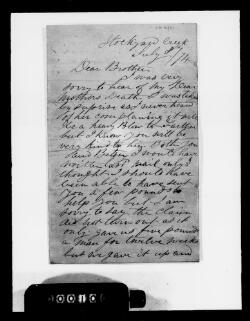 Stockyard Creek
July 8th /74
Dear Brother
I was very
sorry to hear of My Dear
Mothers Death I was taken
by suprise as I never heard
of her complaining it will
be a heavy Blow to
but I know you will be
very kind to him both you
and Betsy I would have
wrote last mail only I
thought I should have
been able to have sent
you a few pounds to
help you but I am
sorry to say the claim
did not turn out as it
only gave us five pounds
a man for twelve weeks
but we gave it up and